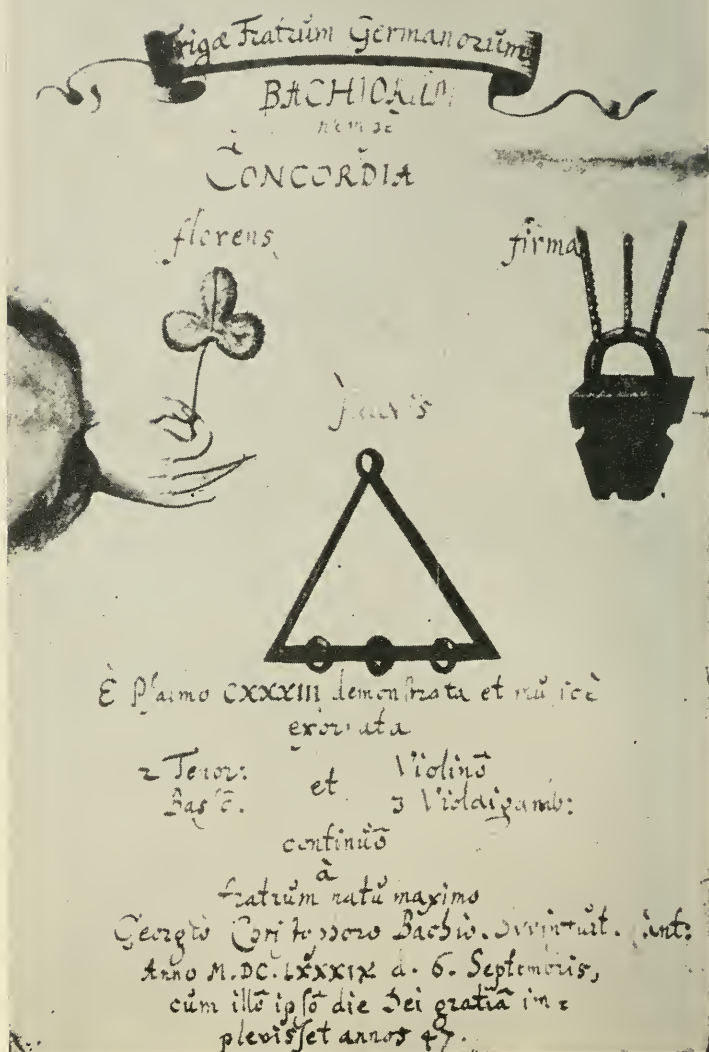 Trigæ Fratrŭm Germanorŭm
BACHIORUM
CONCORDIA
florens
firma
suavis
È Psalmo CXXXIII demonstrata et mŭsicè
exornata
2 Tenor: et Violinō
Bassō. 3 Violdigamb:
continŭō
à
fratrŭm natŭ maximo
Georgio Christophoro Bachio. Svvinfurt. Cant:
Anno M.DC.LXXXIX d. 6. Septembris,
cŭm illō ipsō die Dei gratiâ im=
plevisset annos 47.